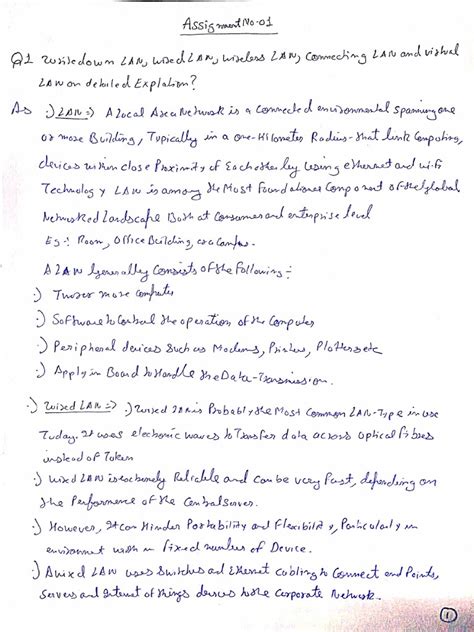 Assignment No-01
Q1 Write down LAN, wired LAN, wireless LAN, Connecting LAN and virtual
LAN on detailed Explation?
As :) LAN => A Local Area Network is a Connected environmental Spanning one
or more Building, Typically in a one-Kilometer Radius-that link Computing,
devices within close Proximity of Each other by using ethernet and wi-fi
Technology LAN is among the Most Foundational Component of the global
Networked Landscape Both at Consumer and enterprise level
Eg:- Room, Office Building, or a Campus.
A LAN Generally Consists of the Following :-
:) Two or more Computer
:) Software to Control the operation of the Computer
:) Peripheral devices Such as Modems, Printer, Plotters etc
:) Apply in Board to Handle the Data-Transmission.
:) Wired LAN => :) Wired LAN is Probably the Most Common LAN-Type in use
Today. It uses electronic waves to Transfer data across optical fibres
instead of Token
:) Wired LAN is extremely Reliable and Can be very Fast, depending on
the Performance of the Central Server.
:) However, It Can Hinder Portability and Flexibility, Particularly in
environment with no Fixed number of Device.
:) A wired LAN uses Switches and Ethernet Cabling to Connect end Points,
Servers and Internet of things devices to the Corporate Network.
1